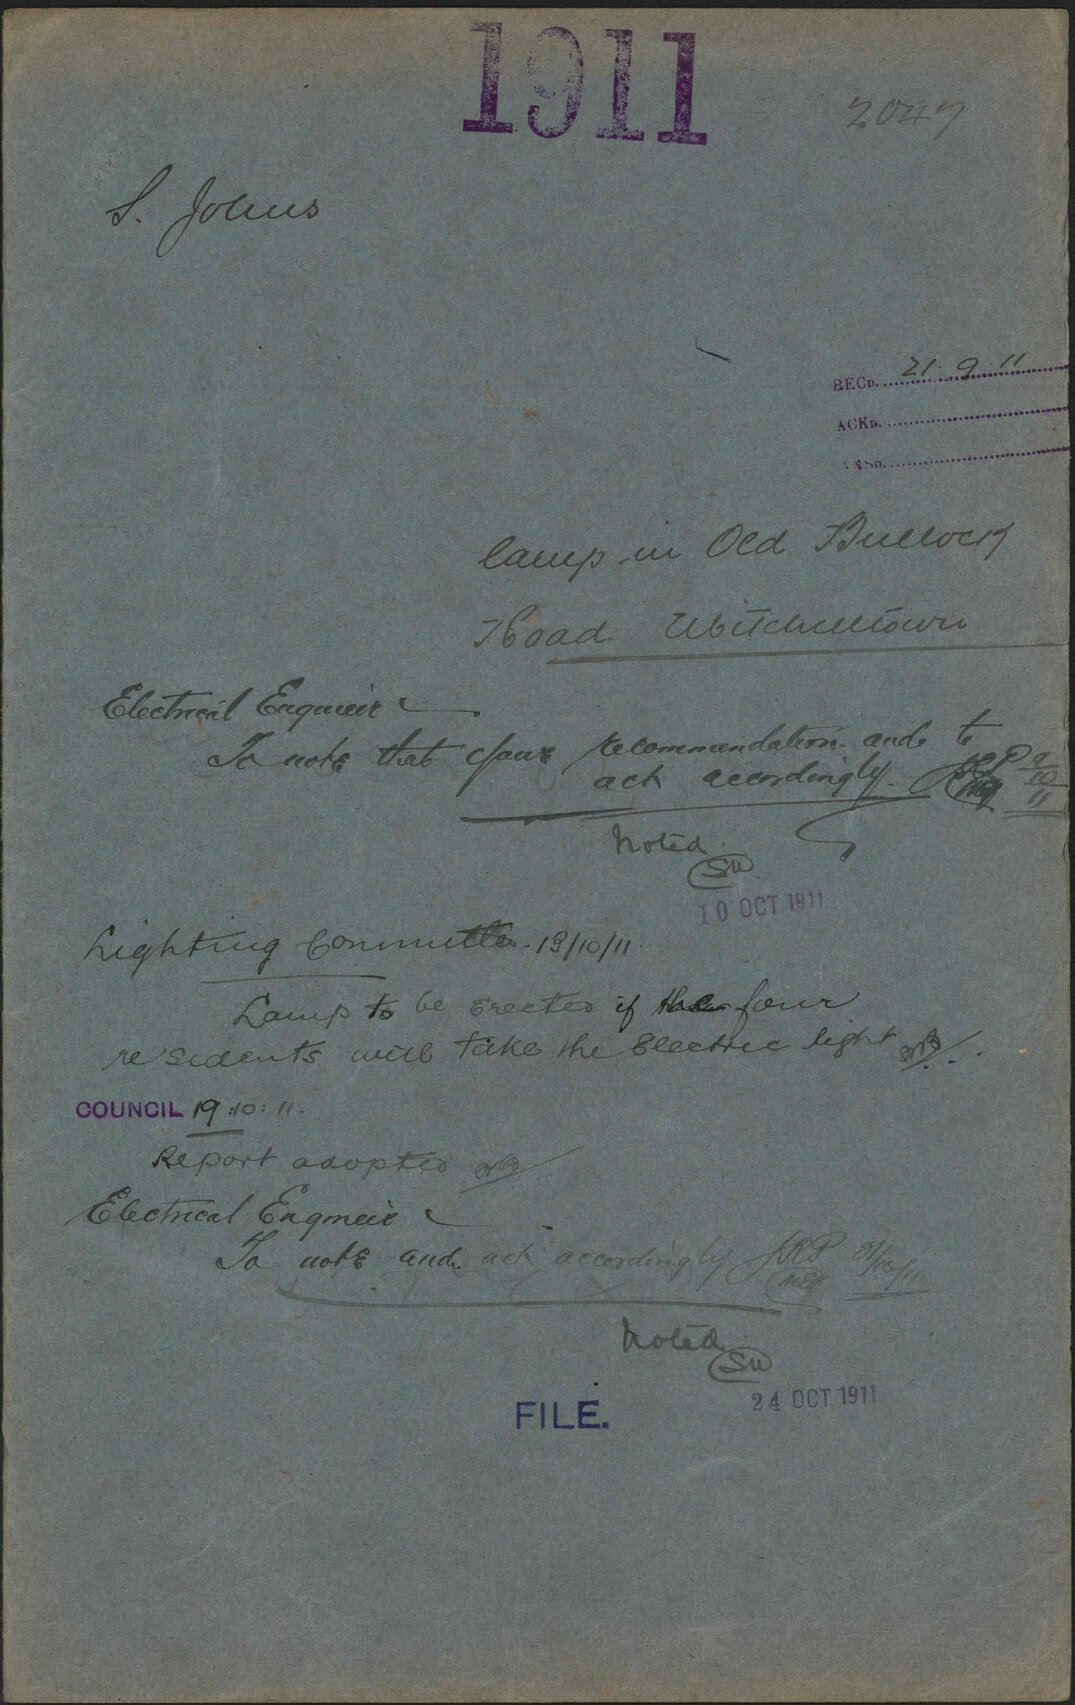 1911
2047
S. Johns
RECD. 21. 9. 11
ACKD.
Lamp in Old Bullock
Road Mitcheltown
Electrical Engineer
To note that your recommendation and to
act accordingly. 9/10/11
Noted
SW
10 OCT 1911
Lighting Committee. 13/10/11.
Lamp to be erected if the four
residents will take the Electric light
COUNCIL 19:10:11.
Report adopted
Electrical Engineer
To note and act accordingly JRP 21/10/11
Noted
SW
24 OCT 1911
FILE.